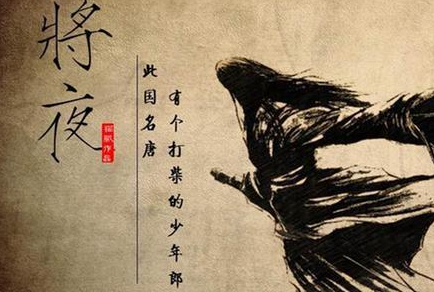 將夜
猫腻作品
有个打柴的少年郎
此国名唐